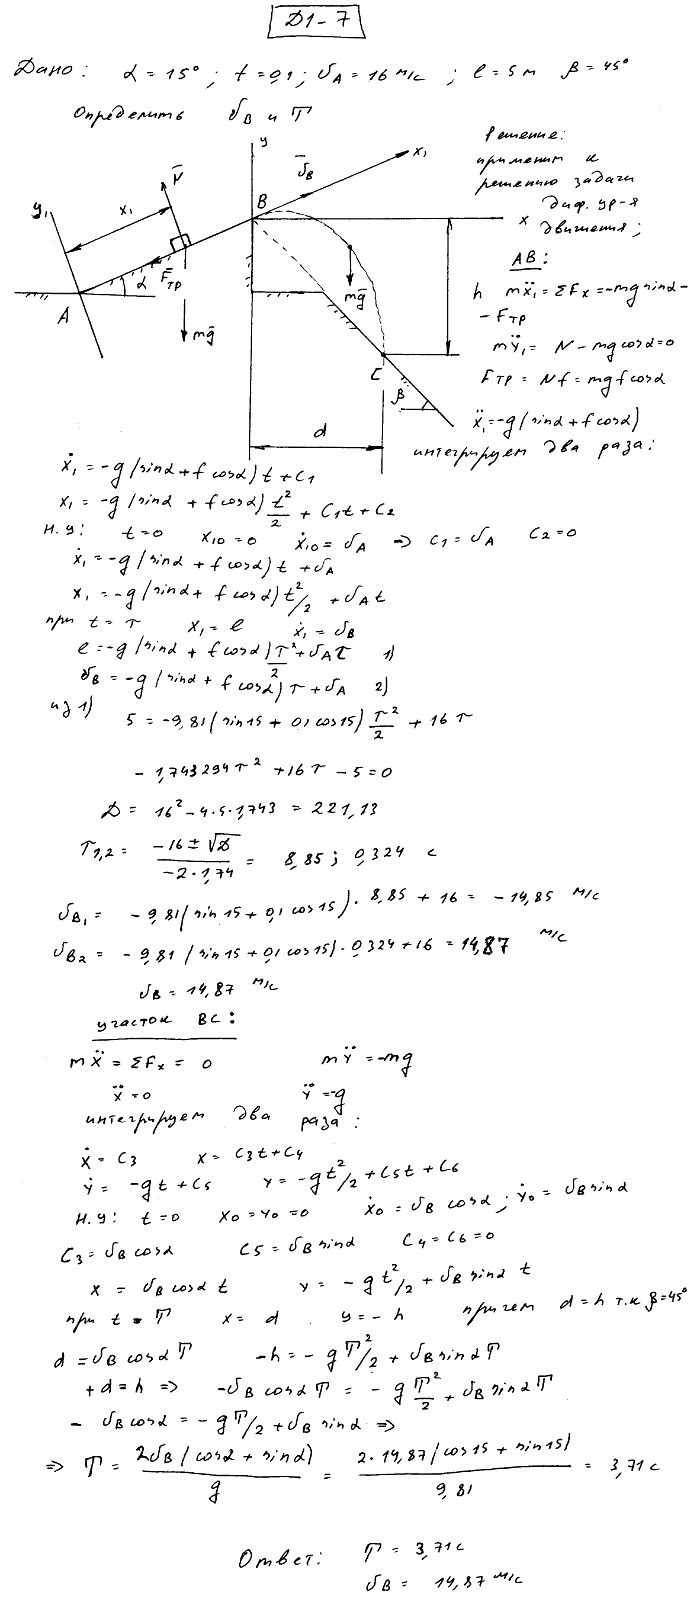 Д1-7
Дано: α = 15° ; f = 0,1 ; υA = 16 м/с ; l = 5 м β = 45°
Определить υB и T
Решение:
применим к
решению задачи
диф. ур-я
движения;
AB:
mẍ₁ = ΣFx = -mg sinα -
- Fтр
mÿ₁ = N - mg cosα = 0
Fтр = Nf = mgf cosα
ẍ₁ = -g(sinα + f cosα)
интегрируем два раза:
y₁
x₁
N̄
y
B
ῡB
x₁
x
A
α
F̄тр
mḡ
mḡ
h
C
β
d
ẋ₁ = -g(sinα + f cosα) t + C₁
x₁ = -g(sinα + f cosα) t²/2 + C₁t + C₂
н.у: t = 0 x₁₀ = 0 ẋ₁₀ = υA => C₁ = υA C₂ = 0
ẋ₁ = -g(sinα + f cosα) t + υA
x₁ = -g(sinα + f cosα) t²/2 + υA t
при t = τ x₁ = l ẋ₁ = υB
l = -g(sinα + f cosα) τ²/2 + υA τ 1)
υB = -g(sinα + f cosα) τ + υA 2)
из 1)
5 = -9,81(sin15 + 0,1 cos15) τ²/2 + 16 τ
- 1,743294 τ² + 16 τ - 5 = 0
D = 16² - 4·5·1,743 = 221,13
τ1,2 = (-16 ± √D)/(-2·1,74) = 8,85 ; 0,324 с
υB₁ = - 9,81(sin 15 + 0,1 cos15) · 8,85 + 16 = - 14,85 м/с
υB₂ = - 9,81 (sin15 + 0,1 cos15) · 0,324 + 16 = 14,87 м/с
υB = 14,87 м/с
участок BC:
mẍ = ΣFx = 0 mÿ = -mg
ẍ = 0 ÿ = -g
интегрируем два раза:
ẋ = C₃ x = C₃t + C₄
ẏ = -gt + C₅ y = -gt²/2 + C₅t + C₆
н.у: t = 0 x₀ = y₀ = 0 ẋ₀ = υB cosα ; ẏ₀ = υB sinα
C₃ = υB cosα C₅ = υB sinα C₄ = C₆ = 0
x = υB cosα t y = - gt²/2 + υB sinα t
при t = T x = d y = - h причем d = h т.к β = 45°
d = υB cosα T -h = - gT²/2 + υB sinα T
+ d = h => -υB cosα T = - g T²/2 + υB sinα T
- υB cosα = - gT/2 + υB sinα =>
=> T = 2υB(cosα + sinα)/g = 2·14,87(cos15 + sin15)/9,81 = 3,71 с
Ответ: T = 3,71 с
υB = 14,87 м/с